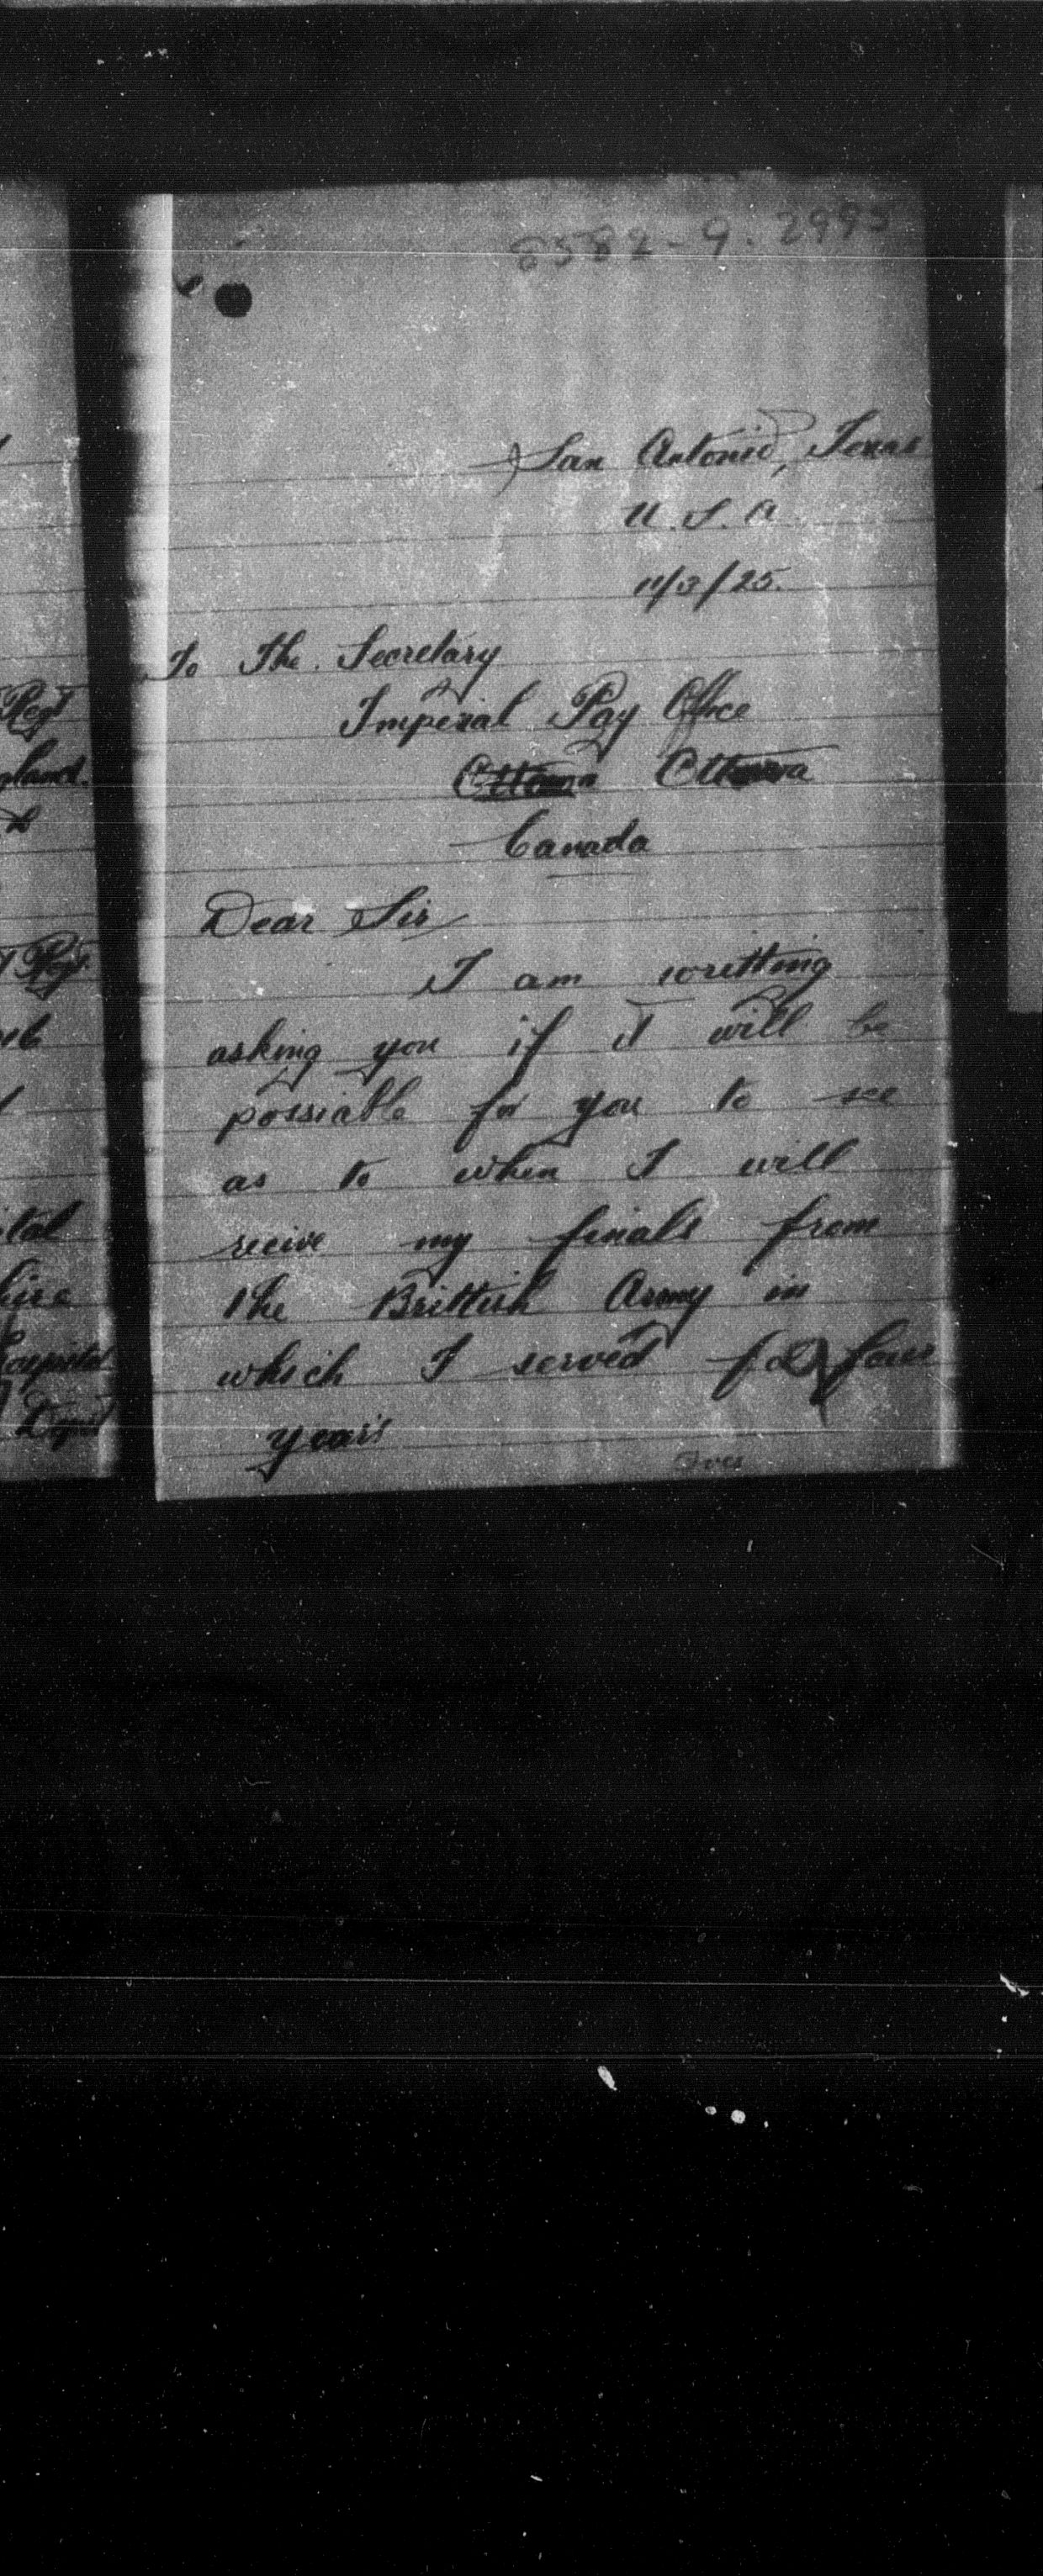 8582-9.2995
San Antonio, Texas
U.S.A
11/3/25.
To The Secretary
Imperial Pay Office
Ottawa Ottawa
Canada
Dear Sir
I am writting
asking you if it will be
possiable for you to see
as to when I will
recive my finals from
the Brittish Army in
which I served for four
year's
Over
Regt
gland.
Rgt.
ital
hire
Hospital
Dept